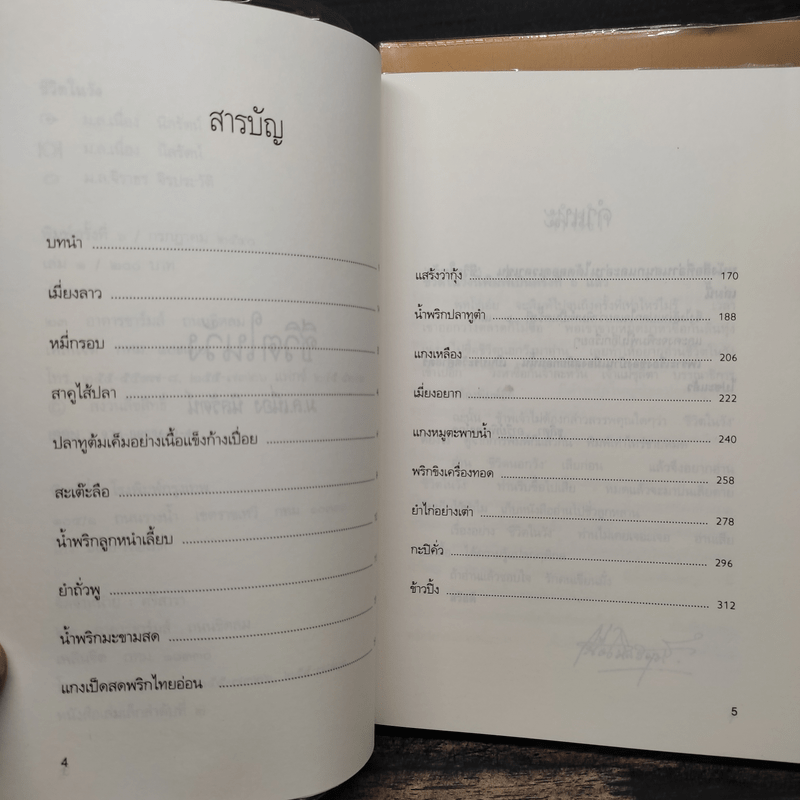 สารบัญ
บทนำ
เมี่ยงลาว
หมี่กรอบ
สาคูไส้ปลา
ปลาทูต้มเค็มอย่างเนื้อแข็งก้างเปื่อย
สะเต๊ะลือ
น้ำพริกลูกหนำเลี้ยบ
ยำถั่วพู
น้ำพริกมะขามสด
แกงเป็ดสดพริกไทยอ่อน
4
แสร้งว่ากุ้ง 170
น้ำพริกปลาทูตำ 188
แกงเหลือง 206
เมี่ยงอยาก 222
แกงหมูตะพาบน้ำ 240
พริกขิงเครื่องทอด 258
ยำไก่อย่างเต่า 278
กะปิคั่ว 296
ข้าวปิ้ง 312
5